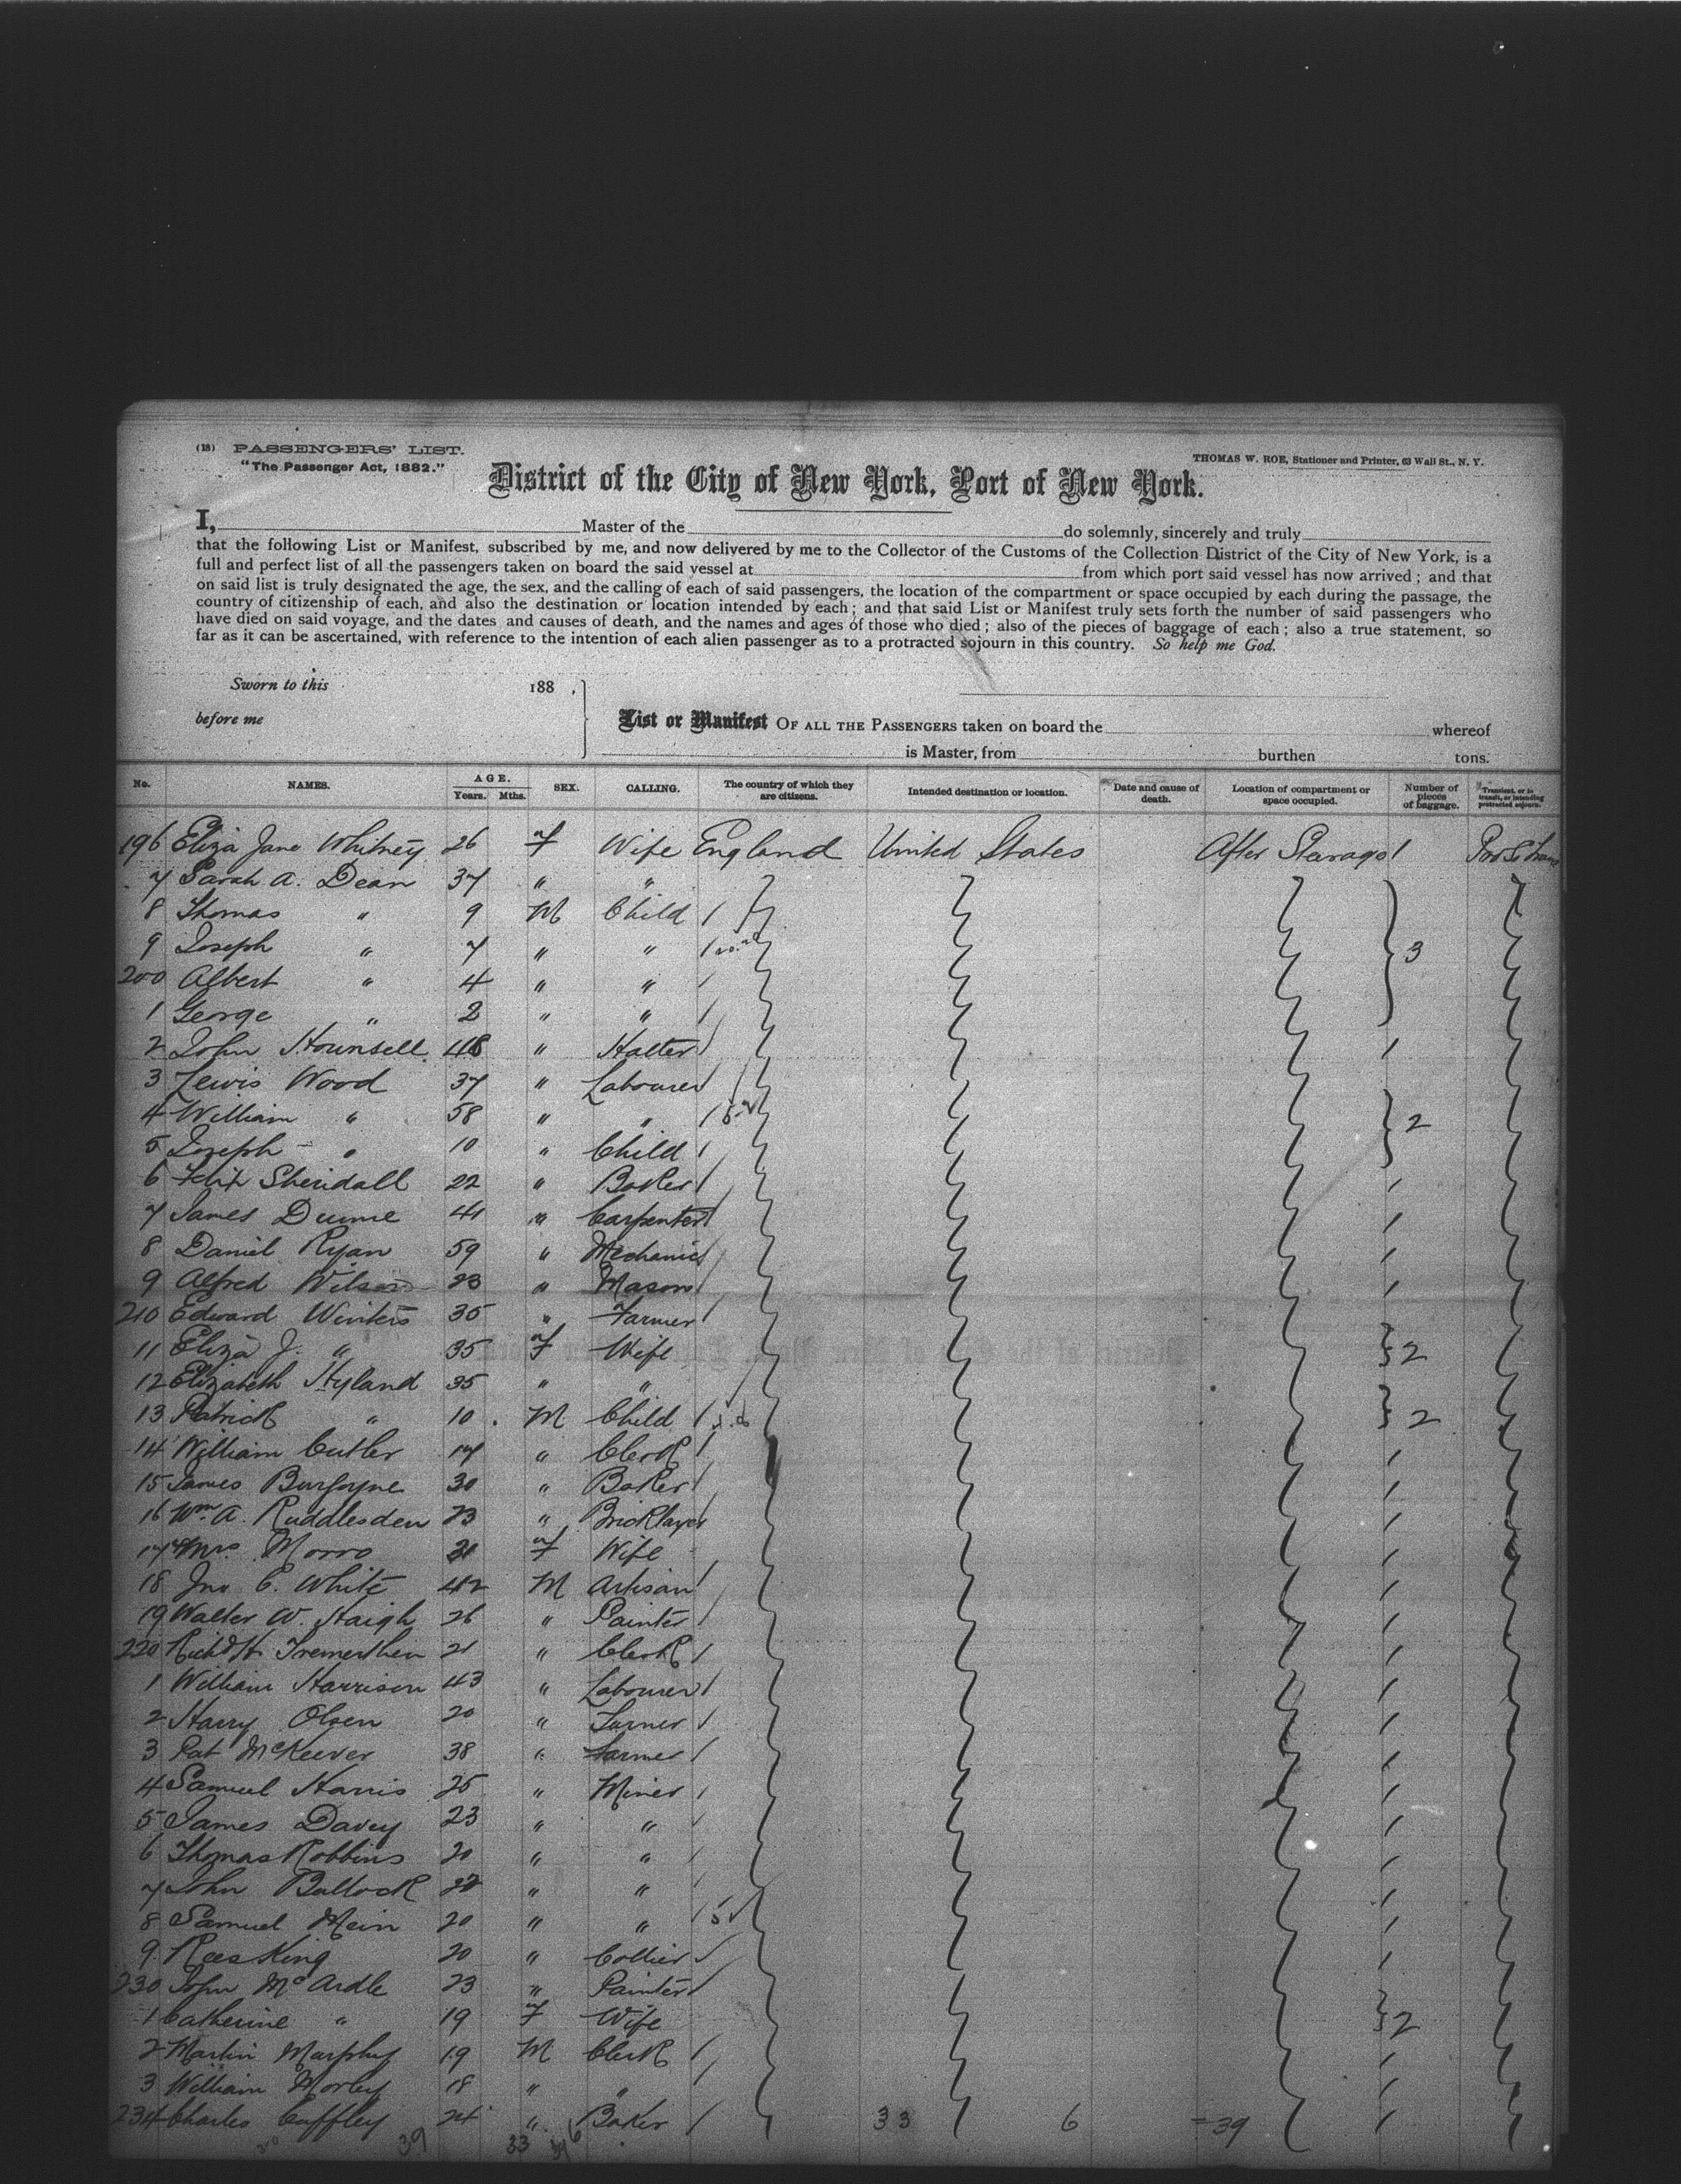 (18) PASSENGERS' LIST.
"The Passenger Act, 1882."
THOMAS W. ROE, Stationer and Printer, 63 Wall St., N. Y.
District of the City of New York, Port of New York.
I, Master of the do solemnly, sincerely and truly
that the following List or Manifest, subscribed by me, and now delivered by me to the Collector of the Customs of the Collection District of the City of New York, is a
full and perfect list of all the passengers taken on board the said vessel at from which port said vessel has now arrived; and that
on said list is truly designated the age, the sex, and the calling of each of said passengers, the location of the compartment or space occupied by each during the passage, the
country of citizenship of each, and also the destination or location intended by each; and that said List or Manifest truly sets forth the number of said passengers who
have died on said voyage, and the dates and causes of death, and the names and ages of those who died; also of the pieces of baggage of each; also a true statement, so
far as it can be ascertained, with reference to the intention of each alien passenger as to a protracted sojourn in this country. So help me God.
Sworn to this 188 ,
before me
List or Manifest OF ALL THE PASSENGERS taken on board the whereof
is Master, from burthen tons.
No. NAMES. AGE. Years. Mths. SEX. CALLING. The country of which they are citizens. Intended destination or location. Date and cause of death. Location of compartment or space occupied. Number of pieces of baggage. Transient, or in transit, or intending protracted sojourn.
196 Eliza Jane Whitney 26 F Wife England United States After Steerage 1
7 Sarah A. Dean 37 " "
8 Thomas " 9 M Child /
9 Joseph " 7 " " / 3
200 Albert " 4 " " /
1 George " 2 " " /
2 John Hounsell 48 " Hatter / 1
3 Lewis Wood 37 " Labourer /
4 William " 58 " " / 2
5 Joseph " 10 " Child /
6 Felix Sheridall 22 " Baker / 1
7 James Dunne 41 " Carpenter / 1
8 Daniel Ryan 59 " Mechanic / 1
9 Alfred Wilson 23 " Mason / 1
210 Edward Winters 35 " Farmer /
11 Eliza J. " 35 F Wife 2
12 Elizabeth Hyland 35 " "
13 Patrick " 10 M Child / 2
14 William Cutler 17 " Clerk / 1
15 James Burgoyne 30 " Baker / 1
16 Wm. A. Ruddlesden 23 " Bricklayer 1
17 Mrs. Morro F Wife 1
18 Jno C. White 42 M Artisan / 1
19 Walter W. Haigh 26 " Painter / 1
220 Richd H. Tremerthen 21 " Clerk / 1
1 William Harrison 43 " Labourer / 1
2 Harry Olsen 20 " Turner / 1
3 Pat McKeever 38 " Farmer / 1
4 Samuel Harris 25 " Miner / 1
5 James Davey 23 " " / 1
6 Thomas Robbins 20 " " / 1
7 John Bullock 22 " " / 1
8 Samuel Mein 20 " " / 1
9 Rees King 20 " Collier / 1
230 John McArdle 23 " Painter /
1 Catherine " 19 F Wife 2
2 Martin Murphy 19 M Clerk / 1
3 William Morley 18 " " / 1
234 Charles Cuffley 24 " Baker / 33 6 = 39 1
39 33 6